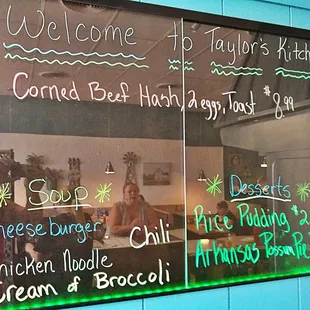 Welcome to Taylor's Kitch
Corned Beef Hash, 2 eggs, Toast $8.99
Soup
heeseburger
Chili
hicken Noodle
Cream of Broccoli
Desserts
Rice Pudding $2
Arkansas Possum Pie